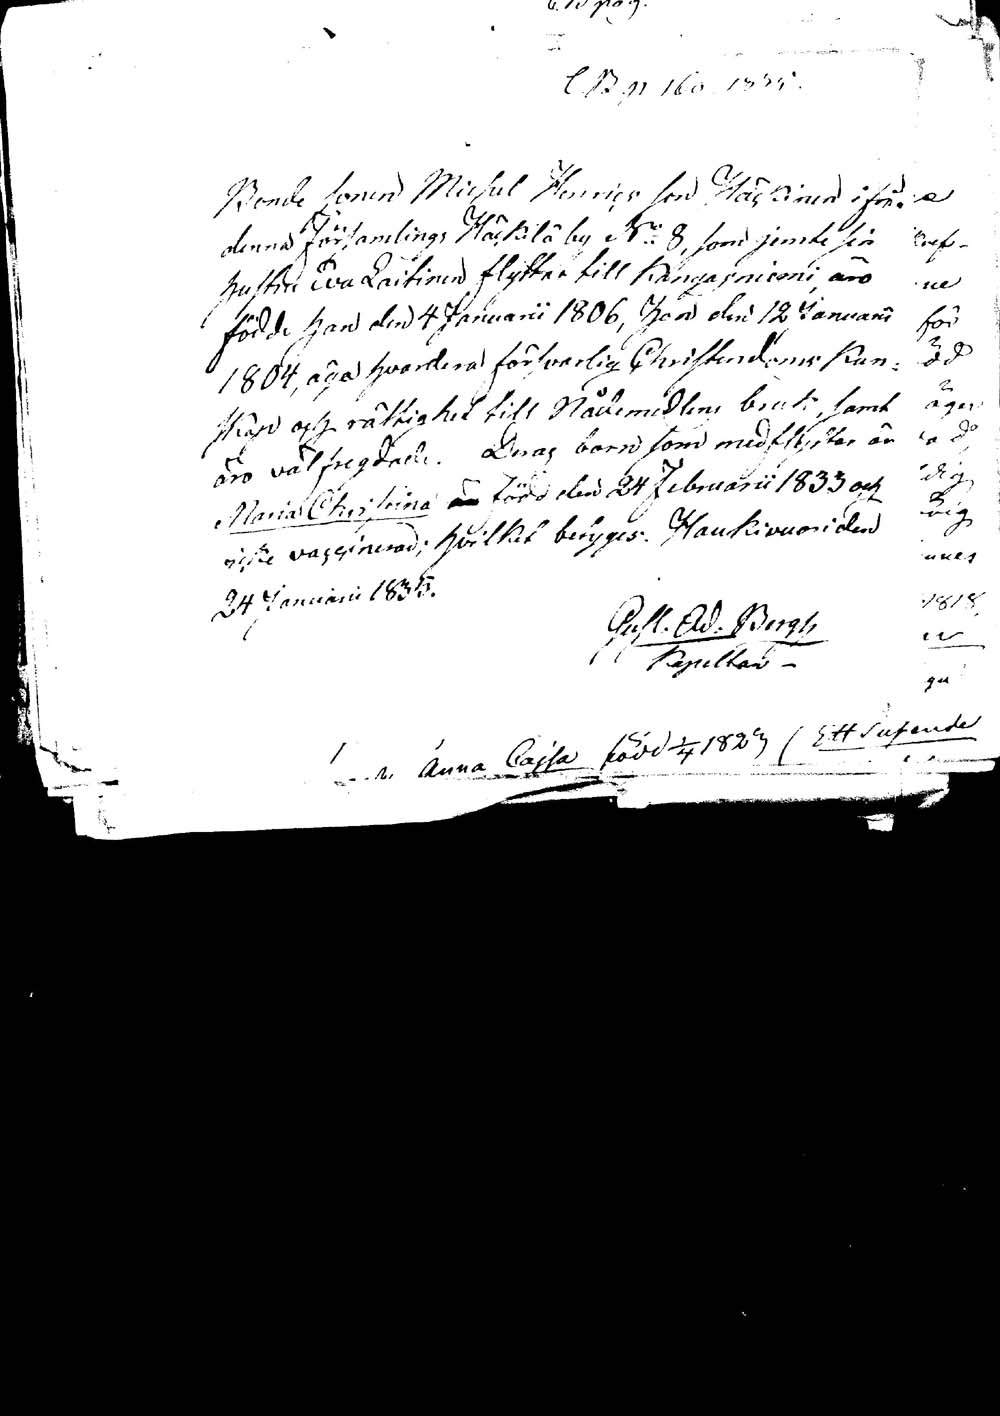 C.B. p 160 1835.
Bonde sonen Michel Henrics son Häckinen ifrån
denna Församlings Häckilä by N:o 8, som jemte sin
hustru Eva Laitinen flyttar till Kangasniemi, äro
födde han den 4 Januarii 1806, hon den 12 Januarii
1804, äga hvardera försvarlig Christendoms kun-
skap och rättighet till Nådemedlens bruk, samt
äro välfregdade. Deras barn som medflyttar är
Maria Christina född den 24 Februarii 1833 och
icke vaccinerad; hvilket betygas. Haukivuori den
24 Januarii 1835.
Gust. Ad. Bergh
Kapellan
för
äger
dig
1818,
Anna Cajsa född 1823 (Ett Supende